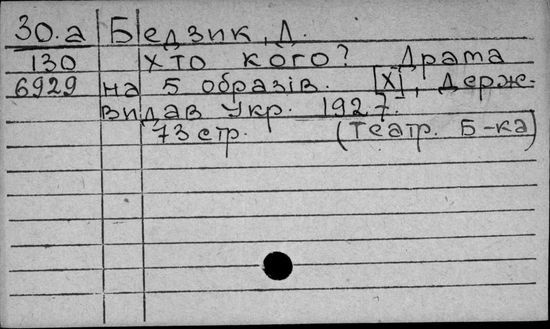 30.а Бедзик, Д.
130 Хто кого? Драма
6929 на 5 образів. [Х], Держ.
видав Укр. 1927.
73 стр. (Театр. Б-ка)